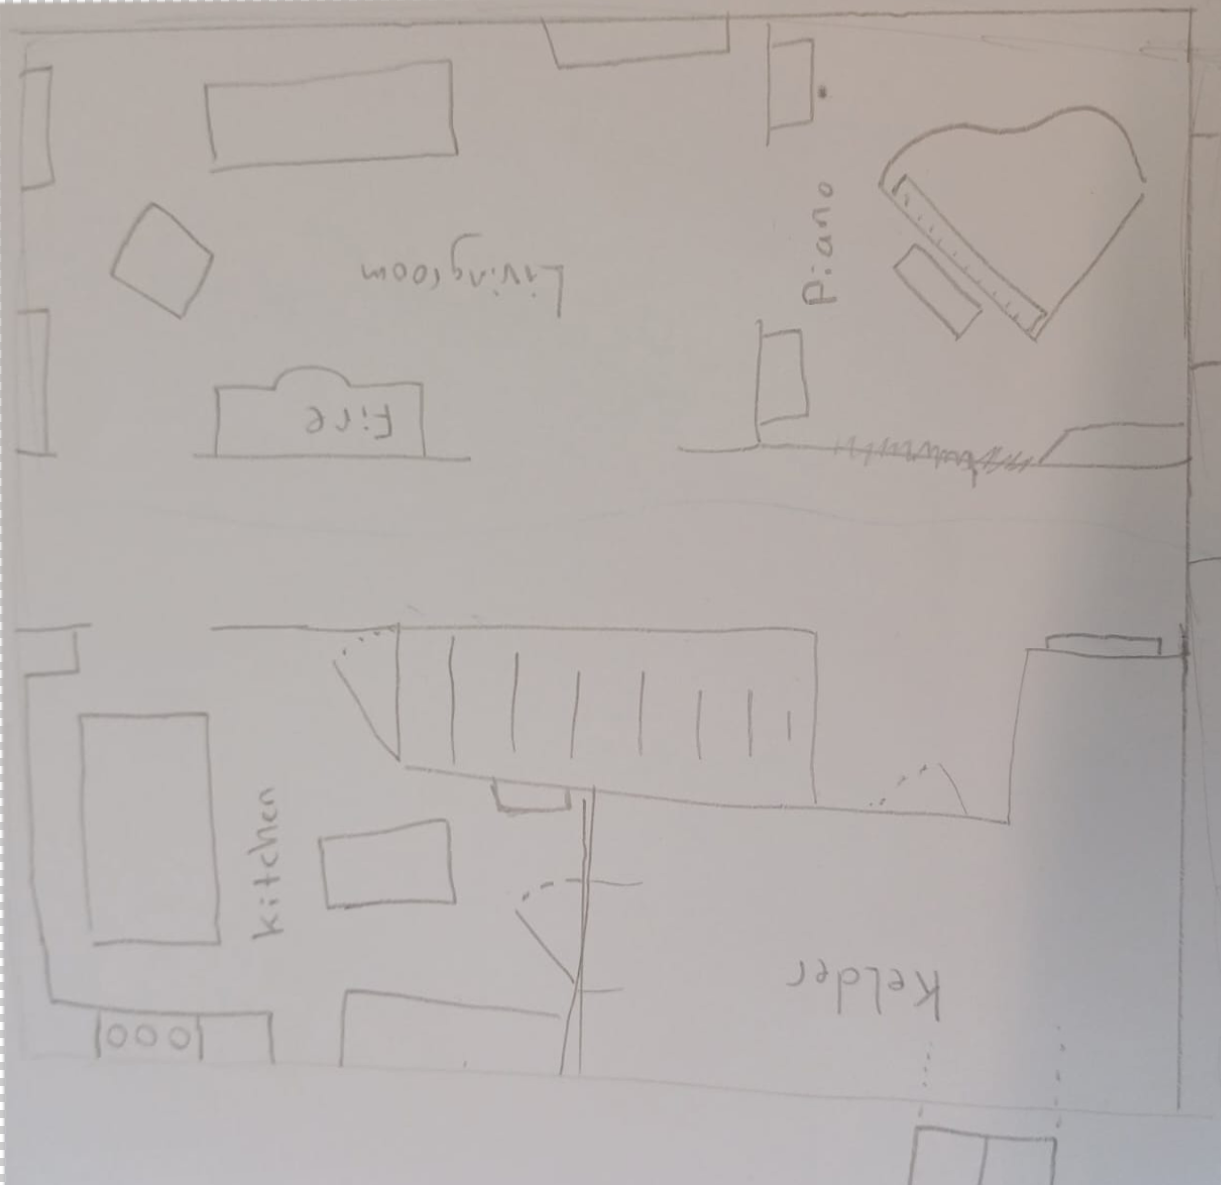 Livingroom
Piano
Fire
kitchen
Kelder